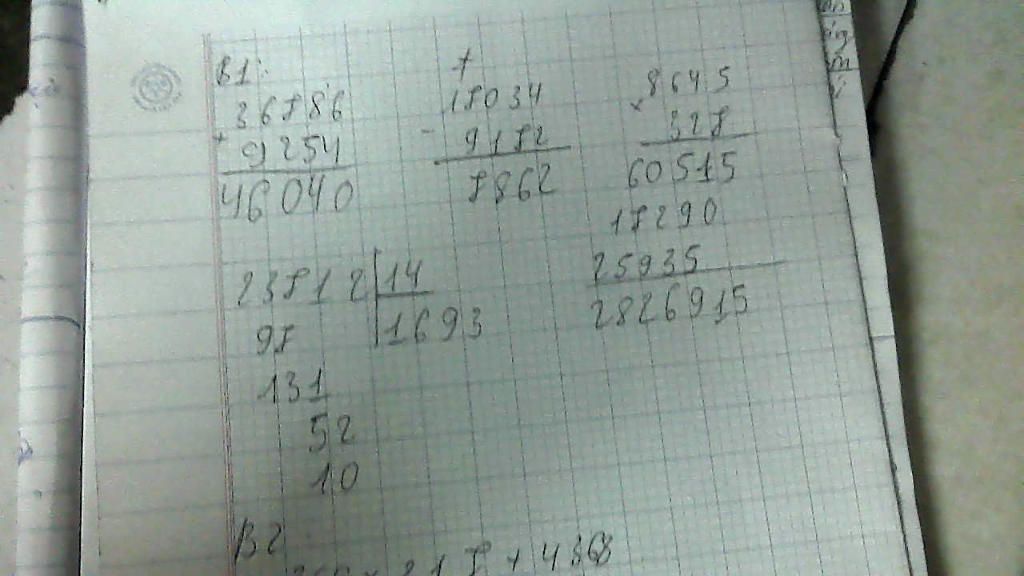 B1:
36786
+ 9254
46040
17034
- 9172
7862
8645
x 327
60515
17290
25935
2826915
23712 | 14
97 1693
131
52
10
B2